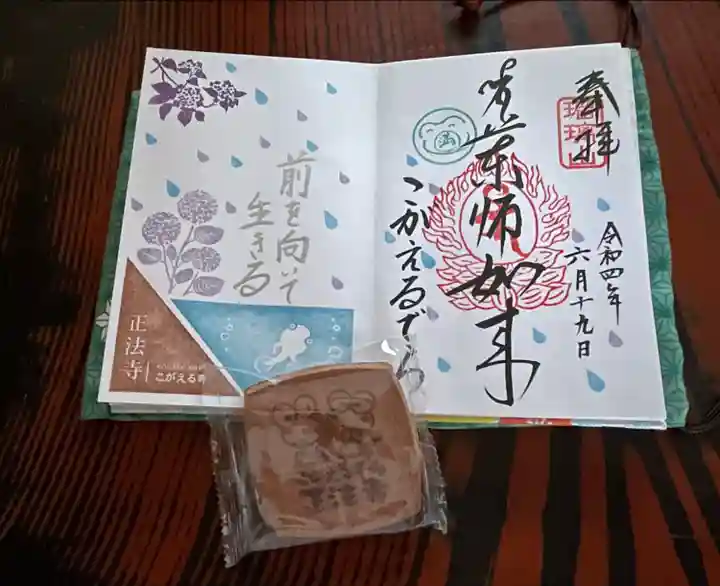 奉拝
瑠璃山
薬師如来
こがえるでら
令和四年
六月十九日
前を向いて
生きる
正法寺
こがえる寺